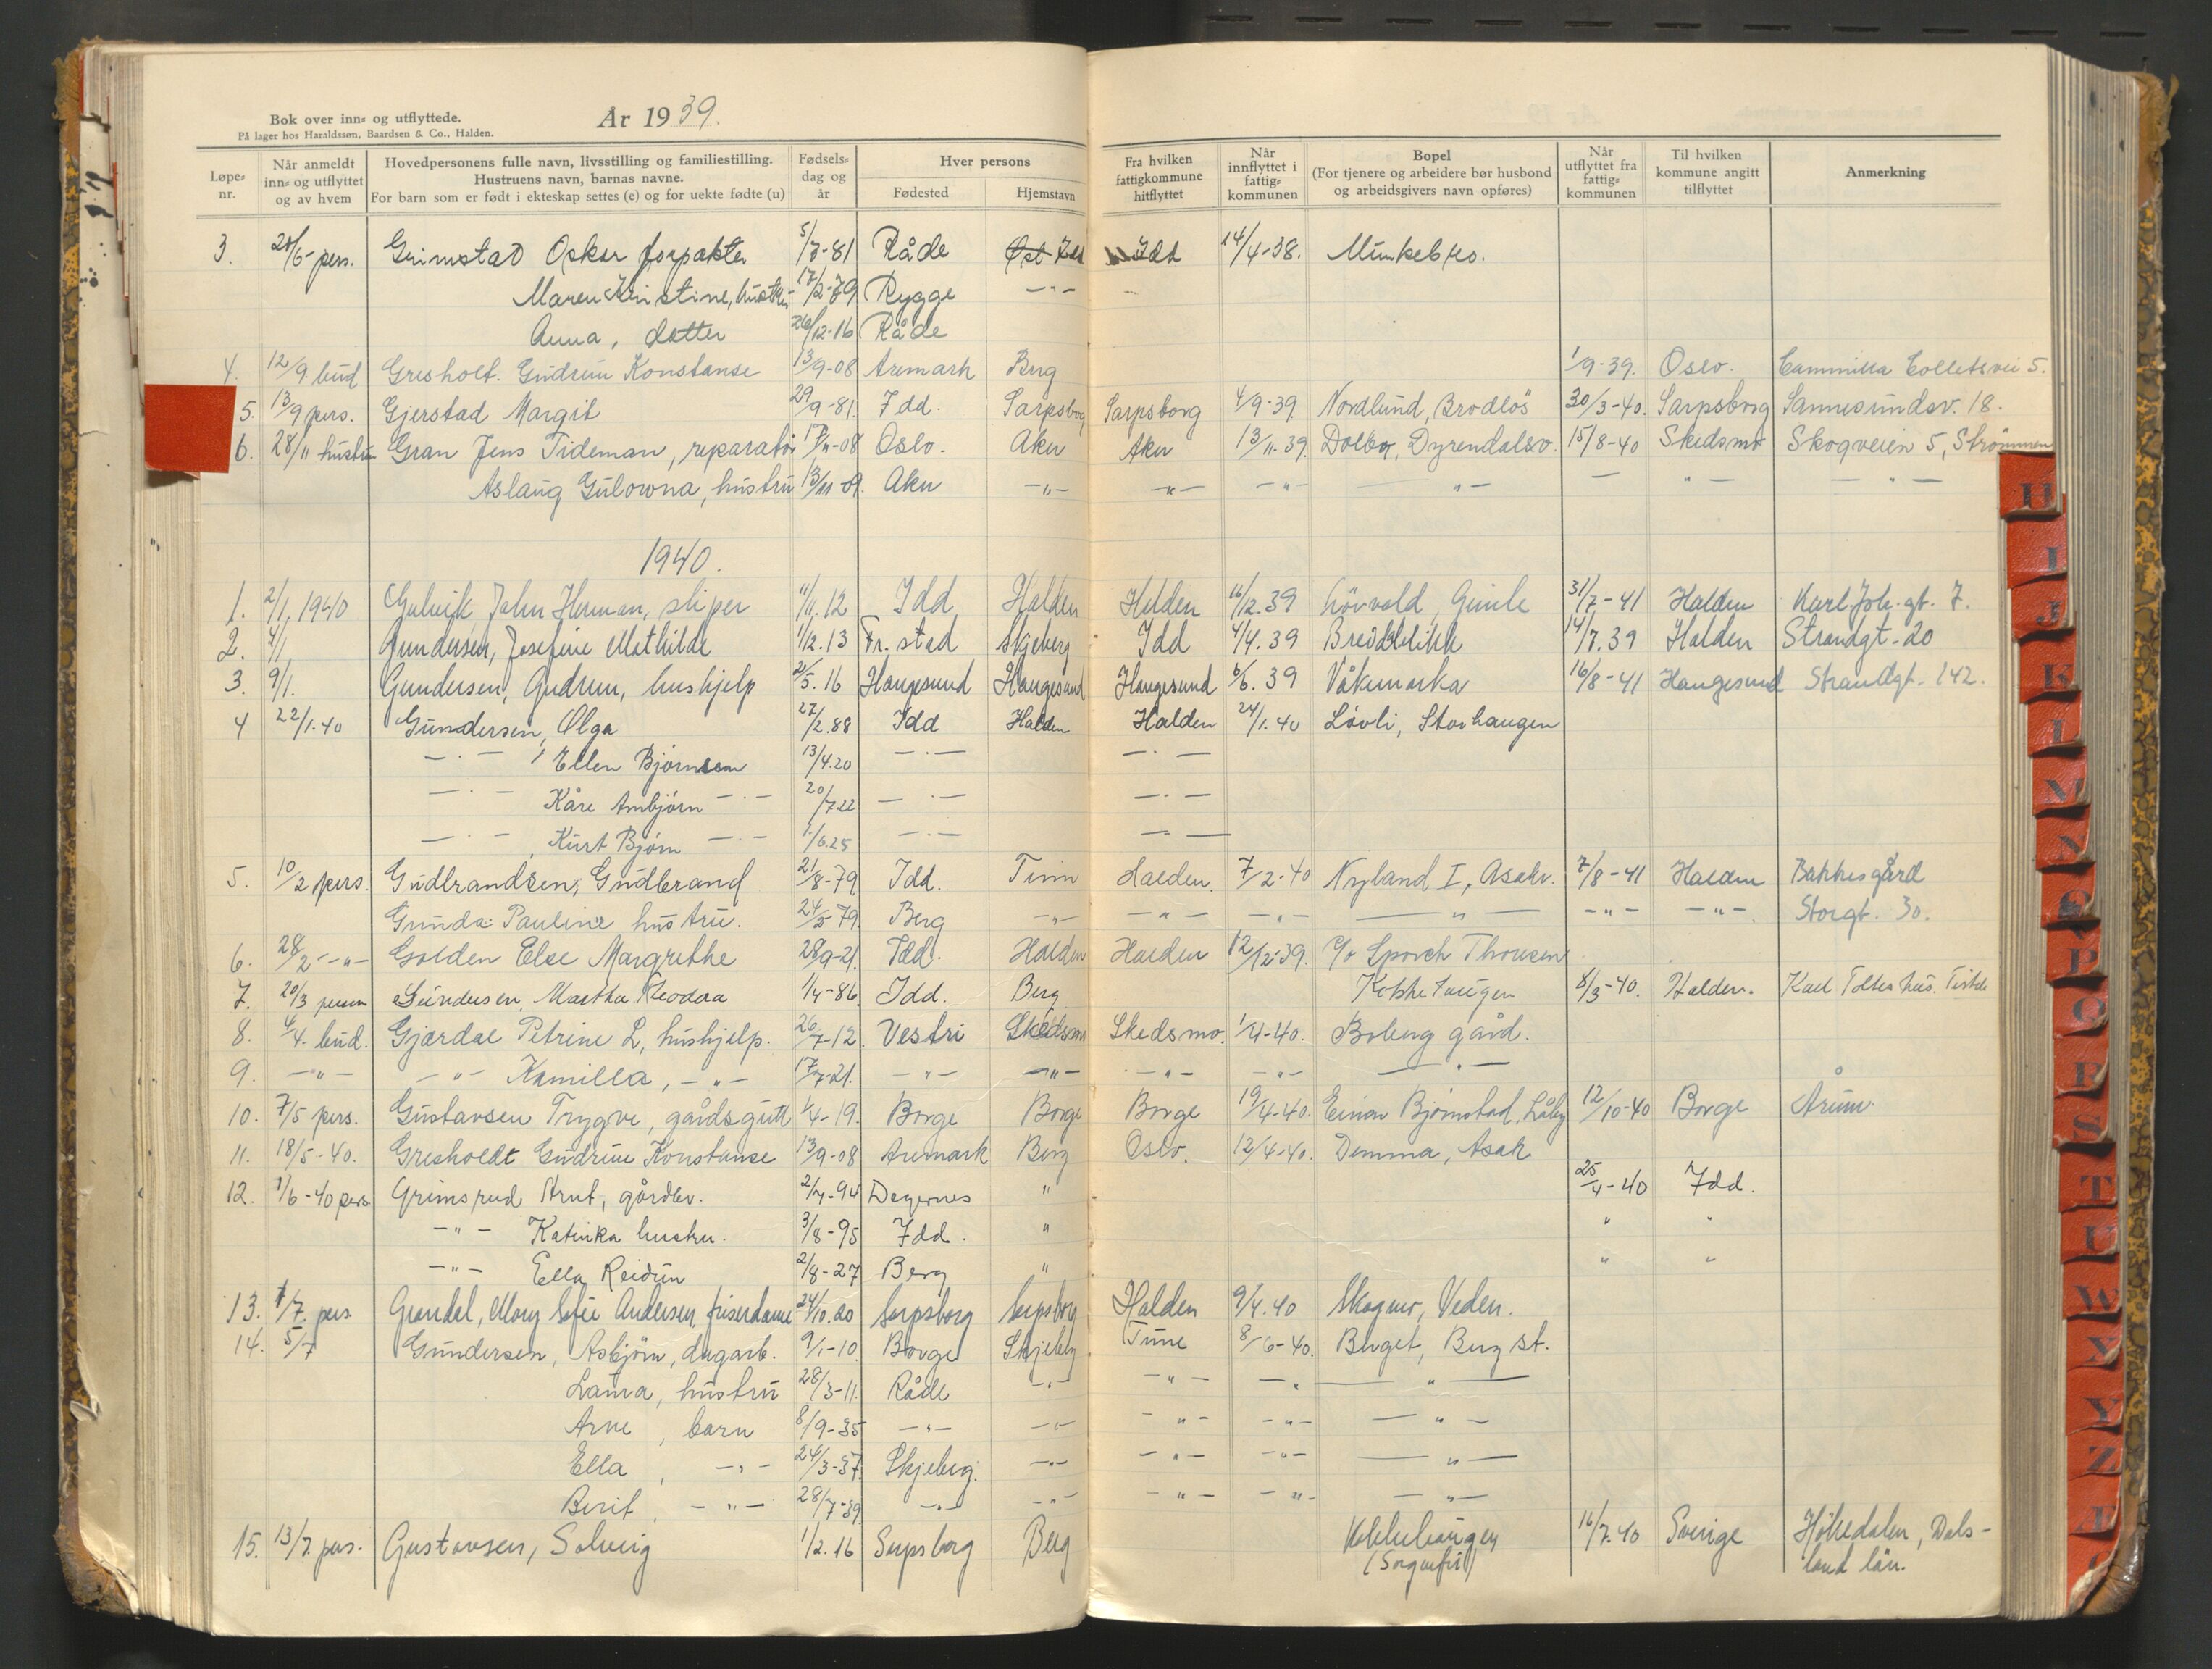 Bok over inn- og utflyttede.
På lager hos Haraldssøn, Baardsen & Co., Halden.
År 1939.
Løpe-nr. Når anmeldt inn- og utflyttet og av hvem Hovedpersonens fulle navn, livsstilling og familiestilling. Hustruens navn, barnas navne. For barn som er født i ekteskap settes (e) og for uekte fødte (u) Fødsels-dag og år Hver persons Fødested Hjemstavn Fra hvilken fattigkommune hitflyttet Når innflyttet i fattig-kommunen Bopel (For tjenere og arbeidere bør husbond og arbeidsgivers navn opføres) Når utflyttet fra fattig-kommunen Til hvilken kommune angitt tilflyttet Anmerkning
3. 28/6 pers. Grimstad Oskar forpakter 5/7-81 Råde Øst Idd Idd 14/4-38. Munkebro.
Maren Kristine, hustru 17/2-79 Rygge -"-
Anna, datter 26/12-16 Råde
4. 12/9 bud Gresholt. Gudrun Konstanse 13/9-08 Aremark Berg 1/9-39. Oslo. Cammilla Colletsvei 5.
5. 13/9 pers. Gjerstad Margit 29/9-81. Idd. Sarpsborg Sarpsborg 4/9-39 Nordlund, Brødløs 30/3-40. Sarpsborg Sannesundsv. 18.
6. 28/11 hustru Gran Jens Tideman, reparatør /11-08 Oslo. Aker Aker 13/11-39. Dolbo, Dyrendalsv. 15/8-40 Skedsmo Skogveien 5, Strømmen
Aslaug Gulowna, hustru 13/11-09. Aker -"- -"- -"- -"- - " - - " -
1940.
1. 2/1, 1940 Gulvik John Herman, sliper 11/11.12 Idd Halden Halden 16/12.39 Løvvold, Gimle 31/7-41 Halden Karl Joh. gt. 7.
2. 4/1 Gundersen, Josefine Mathilde 1/12.13 Fr.stad Skjeberg Idd 4/4.39 Breidablikk 14/7.39 Halden Strandgt. 20
3. 9/1. Gundersen, Gudrun, hushjelp 2/5.16 Haugesund Haugesund Haugesund 6/6.39 Våkemarka 16/8-41 Haugesund Strandgt. 142.
4 22/1.40 Gundersen, Olga 27/2.88 Idd Halden Halden 24/1.40 Løvli, Storhaugen
- " - , Ellen Bjørnsen 13/4.20 - " - - " -
- " - Kåre Ambjørn - " - 20/7.22 - " - - " -
- " - , Kurt Bjørn - " - 1/6.25 - " - - " -
5. 10/2 pers. Gudbrandsen, Gudbrand 21/8-79 Idd. Tinn Halden. 7/2-40 Nyland I, Asakv. 7/8-41 Halden Bakkesgård
Gunda Pauline hustru. 24/5-79. Berg -"- -"- -"- -"- -"- -"- Storgt. 30.
6. 28/2 -"- Golden Else Margrethe 28/9-21. Idd. Halden Halden 12/12-39. c/o Sporch Thoresen
7. 20/3 person Gundersen, Martha Teodora 1/4-86 Idd. Berg Kokkehaugen 8/3-40. Halden. Karl Toltes hus. Tistedalen
8. 4/4 bud. Gjærdal Petrine L, hushjelp. 26/7-12. Vestri Skedsmo Skedsmo. 1/4-40. Boberg gård.
9. -"- -"- Kamilla, -"- 17/7-21. -"- -"- -"- -"- -"-
10. 7/5 pers. Gustavsen Trygve, gårdsgutt 1/4-19. Borge Borge Borge 19/4-40. Einar Bjørnstad, Låby 12/10-40 Borge Årum
11. 18/5-40. Gresholdt Gudrun Konstanse 13/9-08 Aremark Berg Oslo. 12/4-40. Demma, Asak
12. 1/6-40 pers Grimsrud Arnt, gårdbr. 2/7-94 Degernes " 25/4-40 Idd.
-"- Katinka hustru. 3/8-95 Idd. " " "
-"- Ella Reidun 2/8-27 Berg " " "
13. 1/7. pers Grøndal, Mary Sofie Andersen, friserdame 24/10.20 Sarpsborg Sarpsborg Halden 9/4.40 Skogmo, Veden.
14. 5/7 Gundersen, Asbjørn, dagarb. 9/1-10. Borge Skjeberg Tune 8/6-40. Berget, Berg st.
Laura, hustru 28/3-11. Råde -"- -"- -"- -"-
Arne, barn 8/9-35 -"- -"- -"- -"- -"-
Ella, -"- 24/3-37. Skjeberg. -"- -"- -"- -"-
Berit, -"- 28/7-39 -"- -"- -"- -"- -"-
15. 13/7. pers. Gustavsen, Solveig 1/2.16 Sarpsborg Berg Kokkehaugen 16/7.40 Sverige Høkedalen, Dals-
(Sorgenfri) land län.
H
I
J
K
L
M
N
O
P
Q
R
S
T
U
W
X
Y
Z
Æ